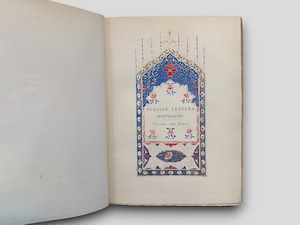 PERSIAN LETTERS
MONTESQUIEU
VOLUME THE FIRST